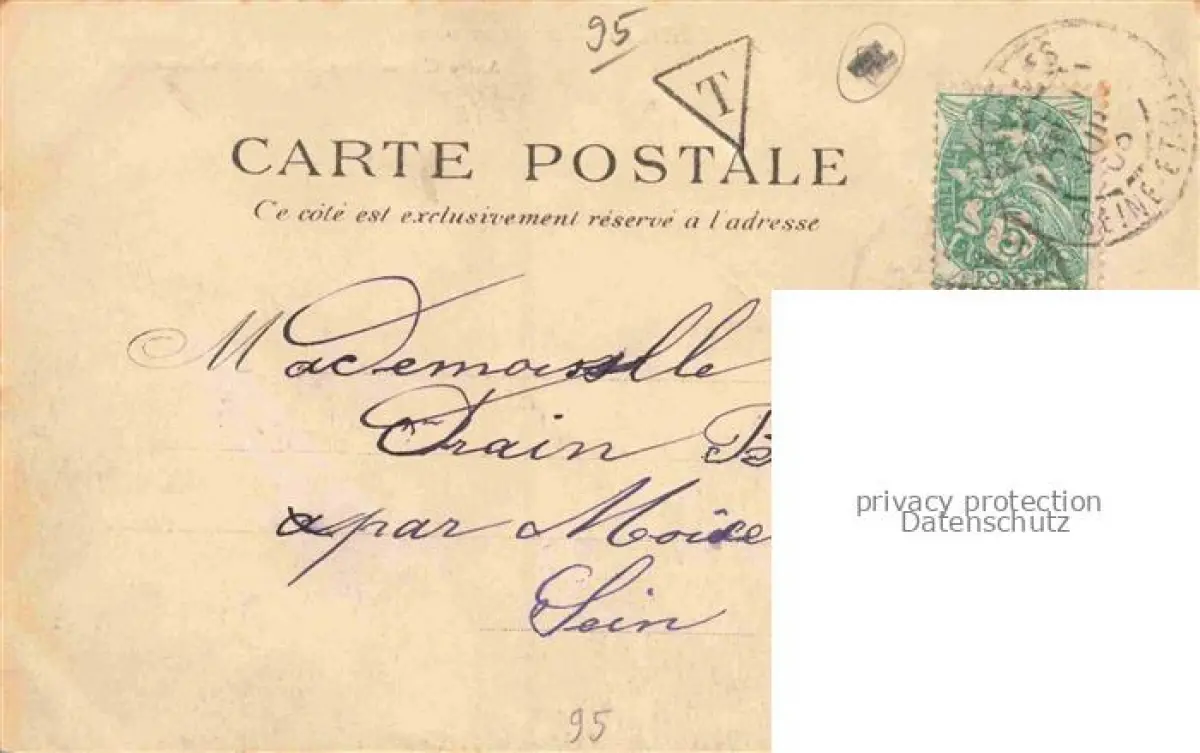 95
T
CARTE POSTALE
Ce côté est exclusivement réservé a l'adresse
5
POSTES
SEINE-ET
Mademoiselle
Drain B
apar Moice
Sein
privacy protection
Datenschutz
95